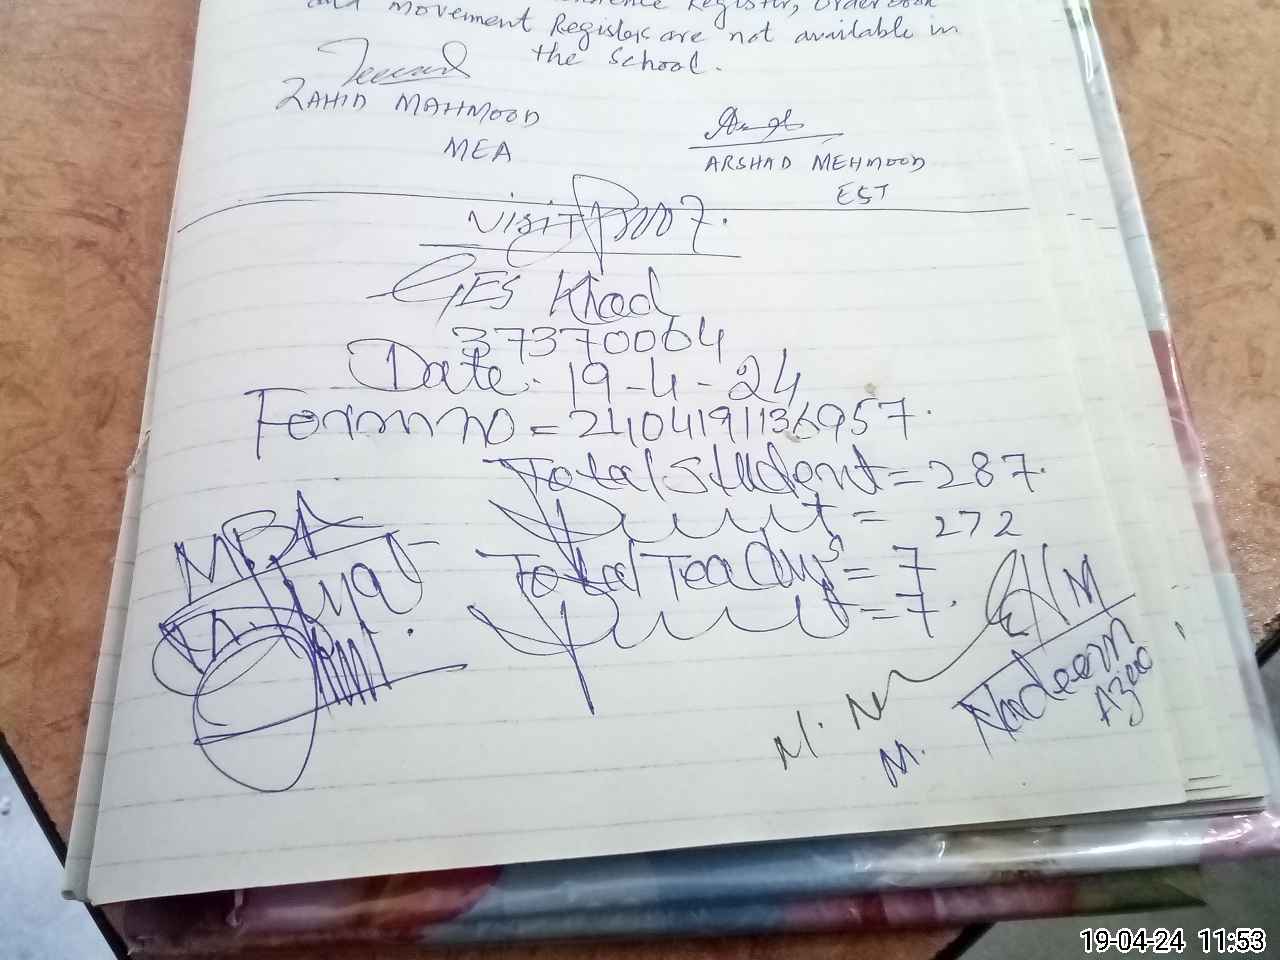 Register, Order Book
and Movement Register are not available in
the School.
ZAHID MAHMOOD
MEA
ARSHAD MEHMOOD
EST
Visit
GES
37370064
Date: 19-4-24
Form no = 2404191136957.
Total Student = 287.
Present = 272
Total Teachers = 7
Present = 7.
MEA
HM
M. Nadeem
19-04-24 11:53